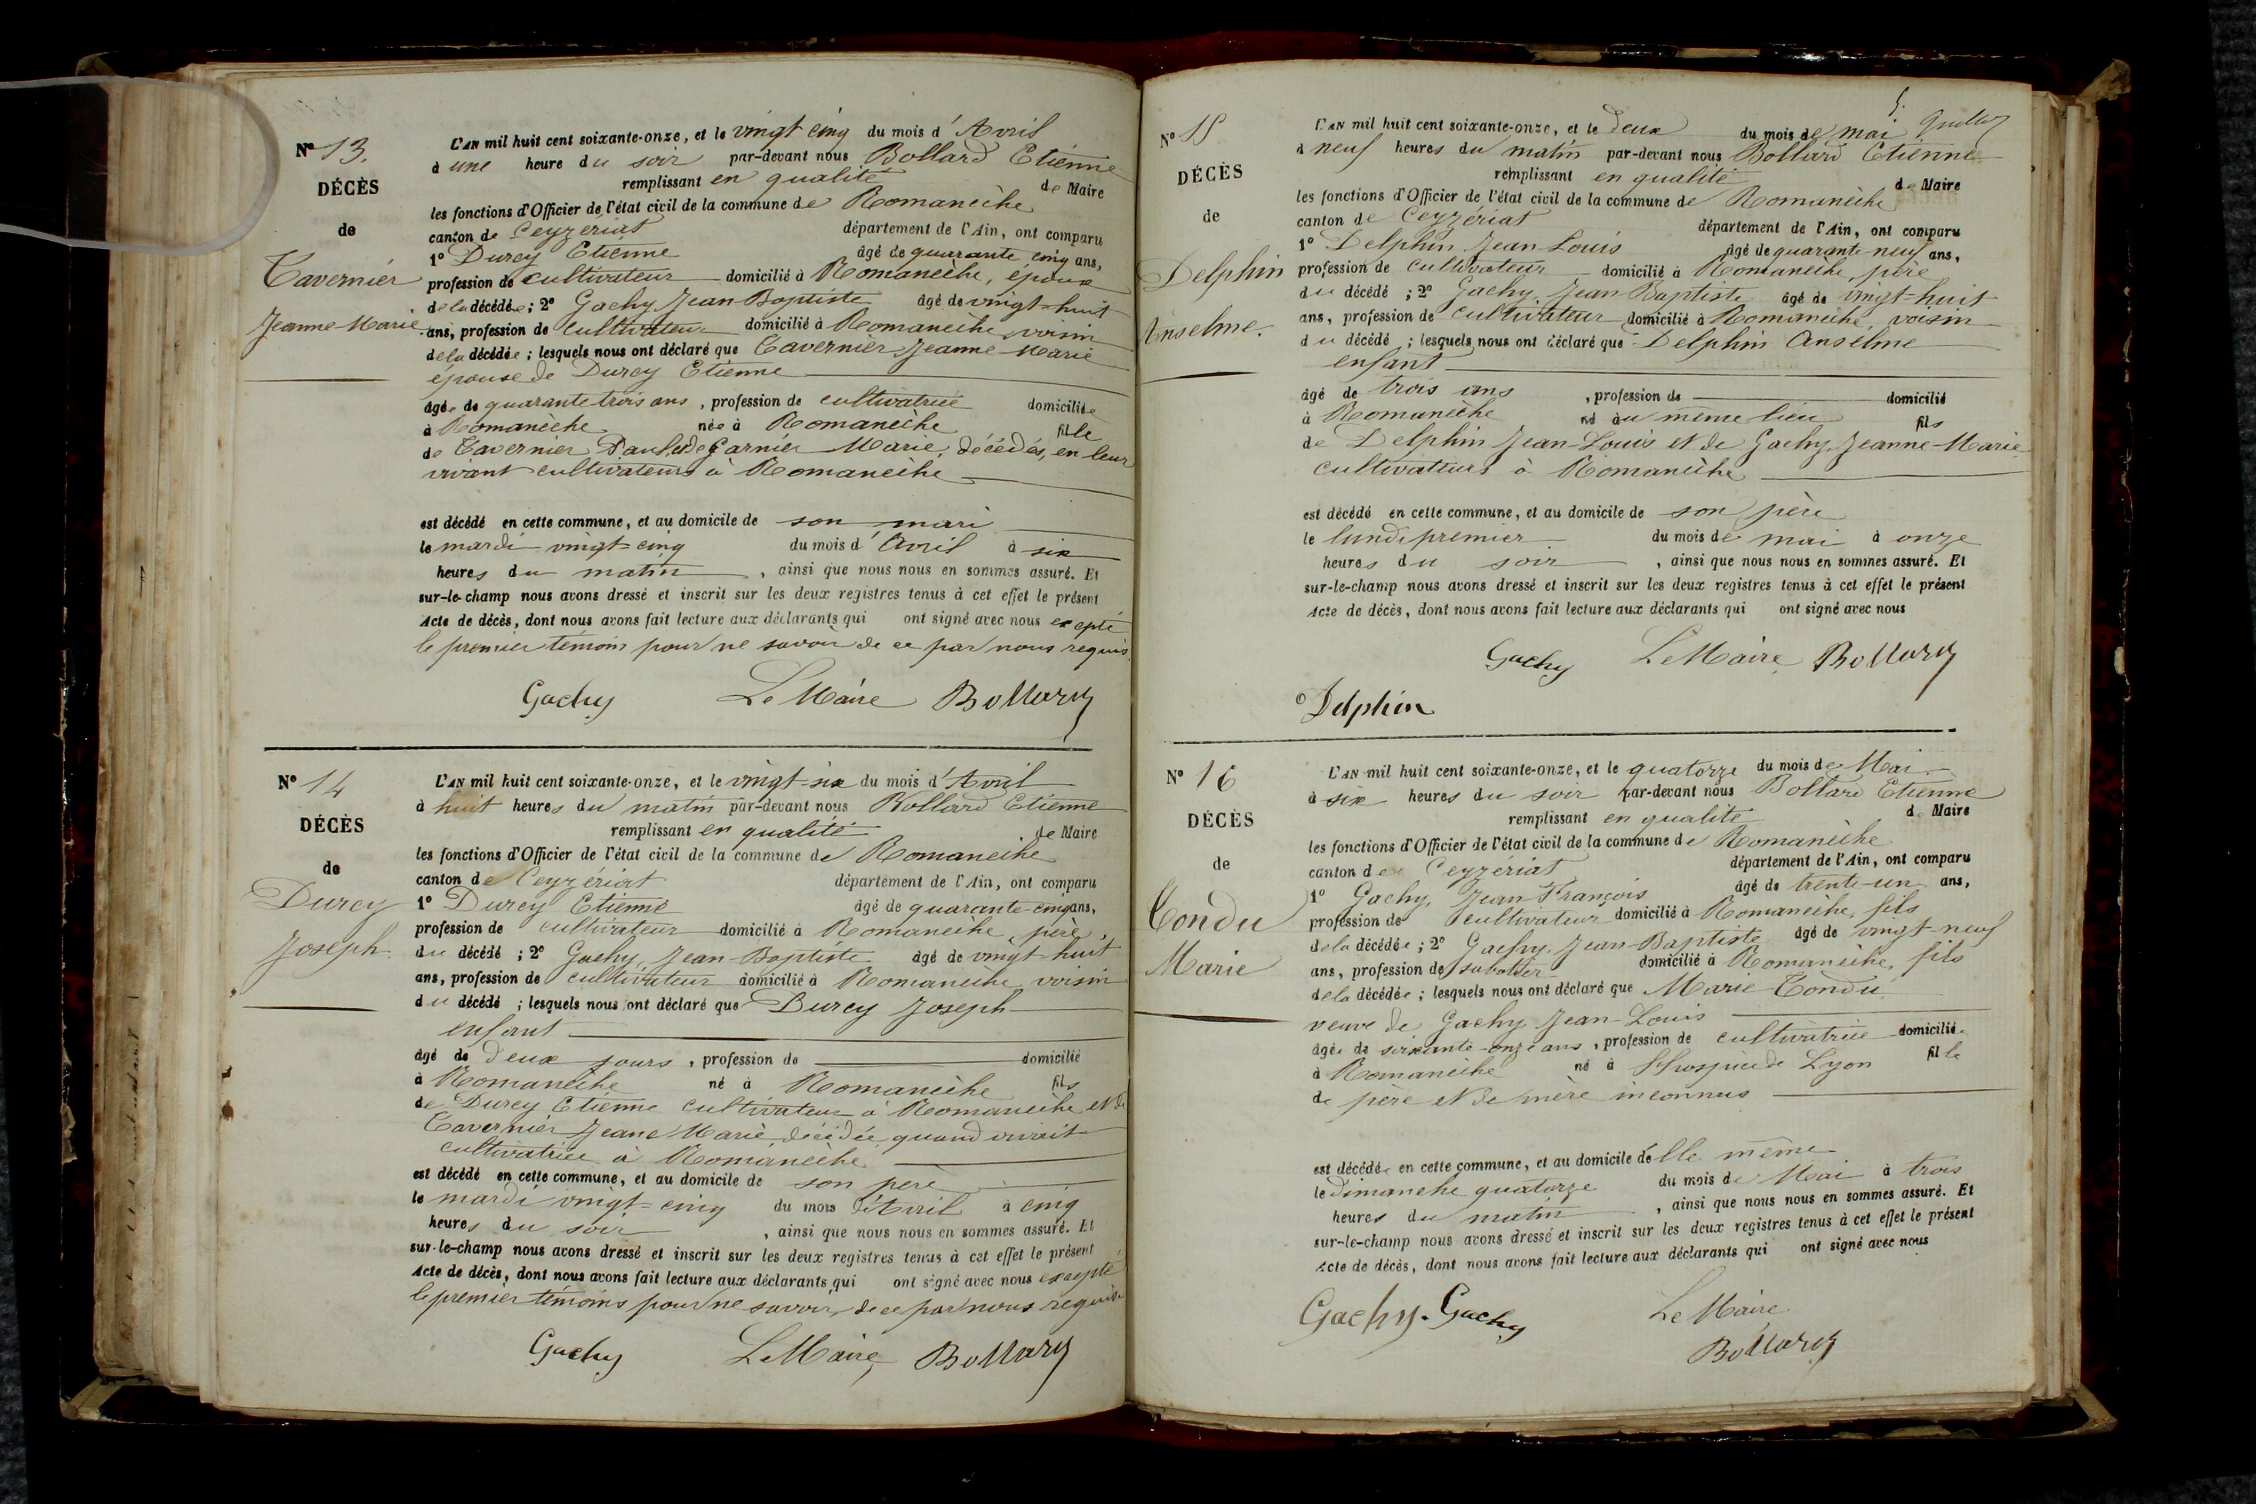 Nº 13.
DÉCÈS
de
Tavernier
Jeanne Marie
L'AN mil huit cent soixante-onze, et le vingt cinq du mois d'Avril
à une heure du soir par-devant nous Bollard Etienne
remplissant en qualité de Maire
les fonctions d'Officier de l'état civil de la commune de Romanèche
canton de Ceyzériat département de l'Ain, ont comparu
1º Durcy Etienne âgé de quarante cinq ans,
profession de cultivateur domicilié à Romanèche, époux
de la décédée ; 2º Gachy Jean-Baptiste âgé de vingt-huit
ans, profession de cultivateur domicilié à Romanèche voisin
de la décédée ; lesquels nous ont déclaré que Tavernier Jeanne Marie
épouse de Durcy Etienne
âgée de quarante trois ans, profession de cultivatrice domiciliée
à Romanèche née à Romanèche fille
de Tavernier Paul et de Garnier Marie, décédés, en leur
vivant cultivateurs à Romanèche
est décédé en cette commune, et au domicile de son mari
le mardi vingt-cinq du mois d'Avril à six
heures du matin, ainsi que nous nous en sommes assuré. Et
sur-le-champ nous avons dressé et inscrit sur les deux registres tenus à cet effet le présent
Acte de décès, dont nous avons fait lecture aux déclarants qui ont signé avec nous excepté
le premier témoin pour ne savoir de ce par nous requis.
Gachy Le Maire Bollard
Nº 14
DÉCÈS
de
Durcy
Joseph
L'AN mil huit cent soixante-onze, et le vingt-six du mois d'Avril
à huit heures du matin par-devant nous Bollard Etienne
remplissant en qualité de Maire
les fonctions d'Officier de l'état civil de la commune de Romanèche
canton de Ceyzériat département de l'Ain, ont comparu
1º Durcy Etienne âgé de quarante-cinq ans,
profession de cultivateur domicilié à Romanèche, père,
du décédé ; 2º Gachy, Jean-Baptiste âgé de vingt-huit
ans, profession de cultivateur domicilié à Romanèche voisin
du décédé ; lesquels nous ont déclaré que Durcy Joseph
enfant
âgé de deux jours, profession de domicilié
à Romanèche né à Romanèche fils
de Durcy Etienne cultivateur à Romanèche et de
Tavernier Jeane Marie, décédée, quand vivait
cultivatrice à Romanèche
est décédé en cette commune, et au domicile de son père
le mardi vingt-cinq du mois d'Avril à cinq
heures du soir, ainsi que nous nous en sommes assuré. Et
sur-le-champ nous avons dressé et inscrit sur les deux registres tenus à cet effet le présent
Acte de décès, dont nous avons fait lecture aux déclarants qui ont signé avec nous excepté
le premier témoins pour ne savoir de ce par nous requis
Gachy Le Maire Bollard
5.
Nº 15
DÉCÈS
de
Delphin
Anselme.
L'AN mil huit cent soixante-onze, et le deux du mois de mai
à neuf heures du matin par-devant nous Bollard Etienne
remplissant en qualité de Maire
les fonctions d'Officier de l'état civil de la commune de Romanèche
canton de Ceyzériat département de l'Ain, ont comparu
1º Delphin Jean-Louis âgé de quarante-neuf ans,
profession de cultivateur domicilié à Romanèche, père
du décédé ; 2º Gachy, Jean-Baptiste âgé de vingt-huit
ans, profession de cultivateur domicilié à Romanèche, voisin
du décédé ; lesquels nous ont déclaré que Delphin Anselme
enfant
âgé de trois ans, profession de domicilié
à Romanèche né au même lieu fils
de Delphin Jean-Louis et de Gachy Jeanne-Marie
cultivateurs à Romanèche
est décédé en cette commune, et au domicile de son père
le lundi premier du mois de mai à onze
heures du soir, ainsi que nous nous en sommes assuré. Et
sur-le-champ nous avons dressé et inscrit sur les deux registres tenus à cet effet le présent
Acte de décès, dont nous avons fait lecture aux déclarants qui ont signé avec nous
Gachy Le Maire Bollard
Delphin
Nº 16
DÉCÈS
de
Tondu
Marie
L'AN mil huit cent soixante-onze, et le quatorze du mois de Mai
à six heures du soir par-devant nous Bollard Etienne
remplissant en qualité de Maire
les fonctions d'Officier de l'état civil de la commune de Romanèche
canton de Ceyzériat département de l'Ain, ont comparu
1º Gachy, Jean-François âgé de trente-un ans,
profession de cultivateur domicilié à Romanèche, fils
de la décédée ; 2º Gachy, Jean-Baptiste âgé de vingt-neuf
ans, profession de sabotier domicilié à Romanèche, fils
de la décédée ; lesquels nous ont déclaré que Marie Tondu
veuve de Gachy Jean-Louis
âgée de soixante-onze ans, profession de cultivatrice domiciliée
à Romanèche né à l'hospice de Lyon fille
de père et de mère inconnus
est décédée en cette commune, et au domicile d'elle même
le dimanche quatorze du mois de Mai à trois
heures du matin, ainsi que nous nous en sommes assuré. Et
sur-le-champ nous avons dressé et inscrit sur les deux registres tenus à cet effet le présent
Acte de décès, dont nous avons fait lecture aux déclarants qui ont signé avec nous
Gachy. Gachy Le Maire
Bollard